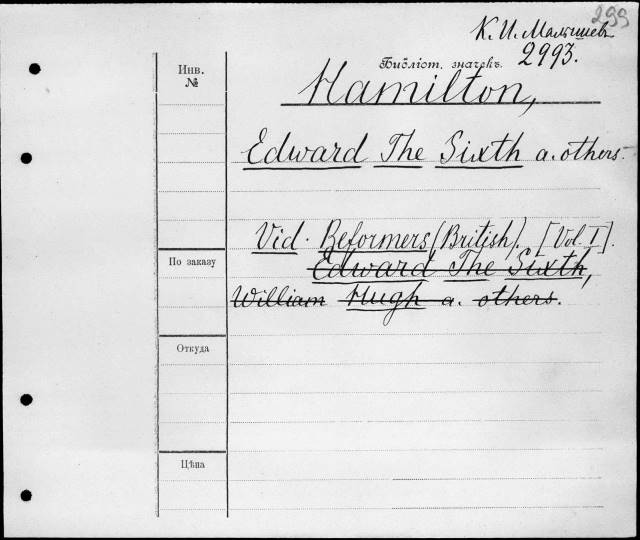 299
К. И. Малышевъ
2993.
Инв.
№
Библіот. значекъ.
Hamilton,
Edward The Sixth a. others.
Vid. Reformers (British). [Vol. I].
По заказу
Edward The Sixth,
William Hugh a. others.
Откуда
Цѣна